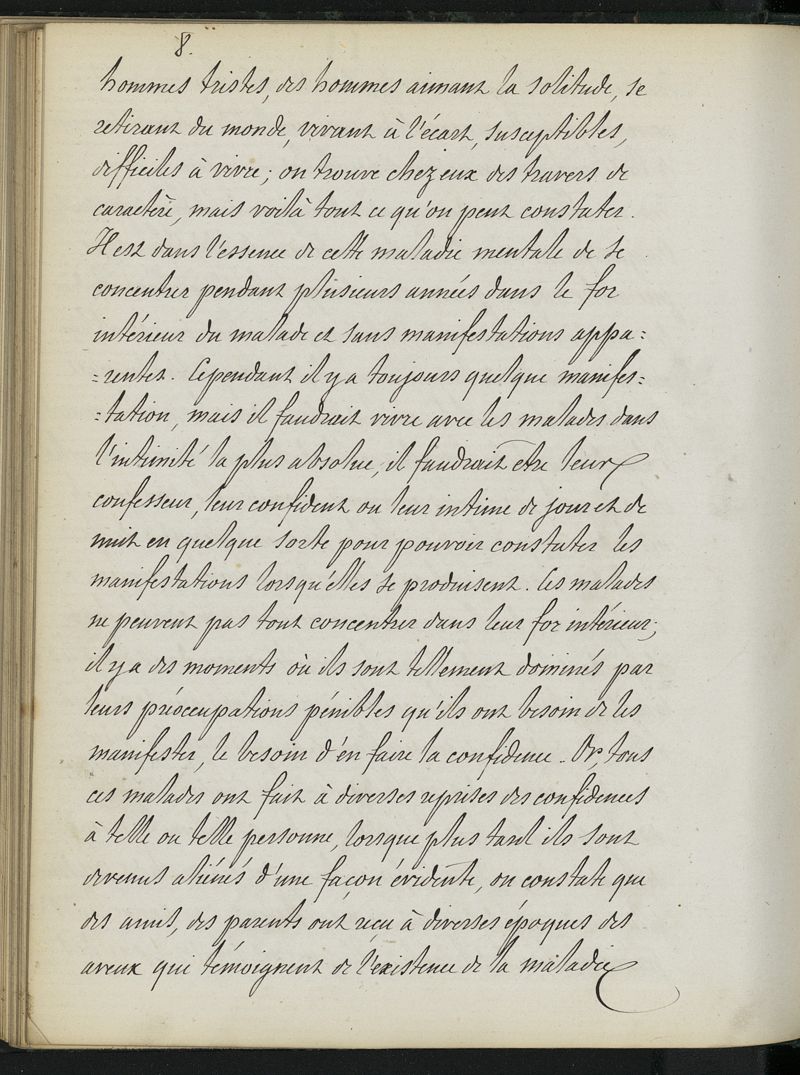 8.
hommes tristes, des hommes aimant la solitude, se
retirant du monde, vivant à l'écart, susceptibles,
difficiles à vivre; on trouve chez eux des travers de
caractère, mais voilà tout ce qu'on peut constater.
Il est dans l'essence de cette maladie mentale de se
concentrer pendant plusieurs années dans le for
intérieur du malade et sans manifestations appa=
=rentes. Cependant il y a toujours quelque manifes=
=tation, mais il faudrait vivre avec les malades dans
l'intimité la plus absolue, il faudrait être leur
confesseur, leur confident ou leur intime de jour et de
nuit en quelque sorte pour pouvoir constater les
manifestations lorsqu'elles se produisent. Ces malades
ne peuvent pas tout concentrer dans leur for intérieur;
il y a des moments où ils sont tellement dominés par
leurs préoccupations pénibles qu'ils ont besoin de les
manifester, le besoin d'en faire la confidence. Or, tous
ces malades ont fait à diverses reprises des confidences
à telle ou telle personne, lorsque plus tard ils sont
devenus aliénés d'une façon évidente, on constate que
des amis, des parents ont reçu à diverses époques des
aveux qui témoignent de l'existence de la maladie